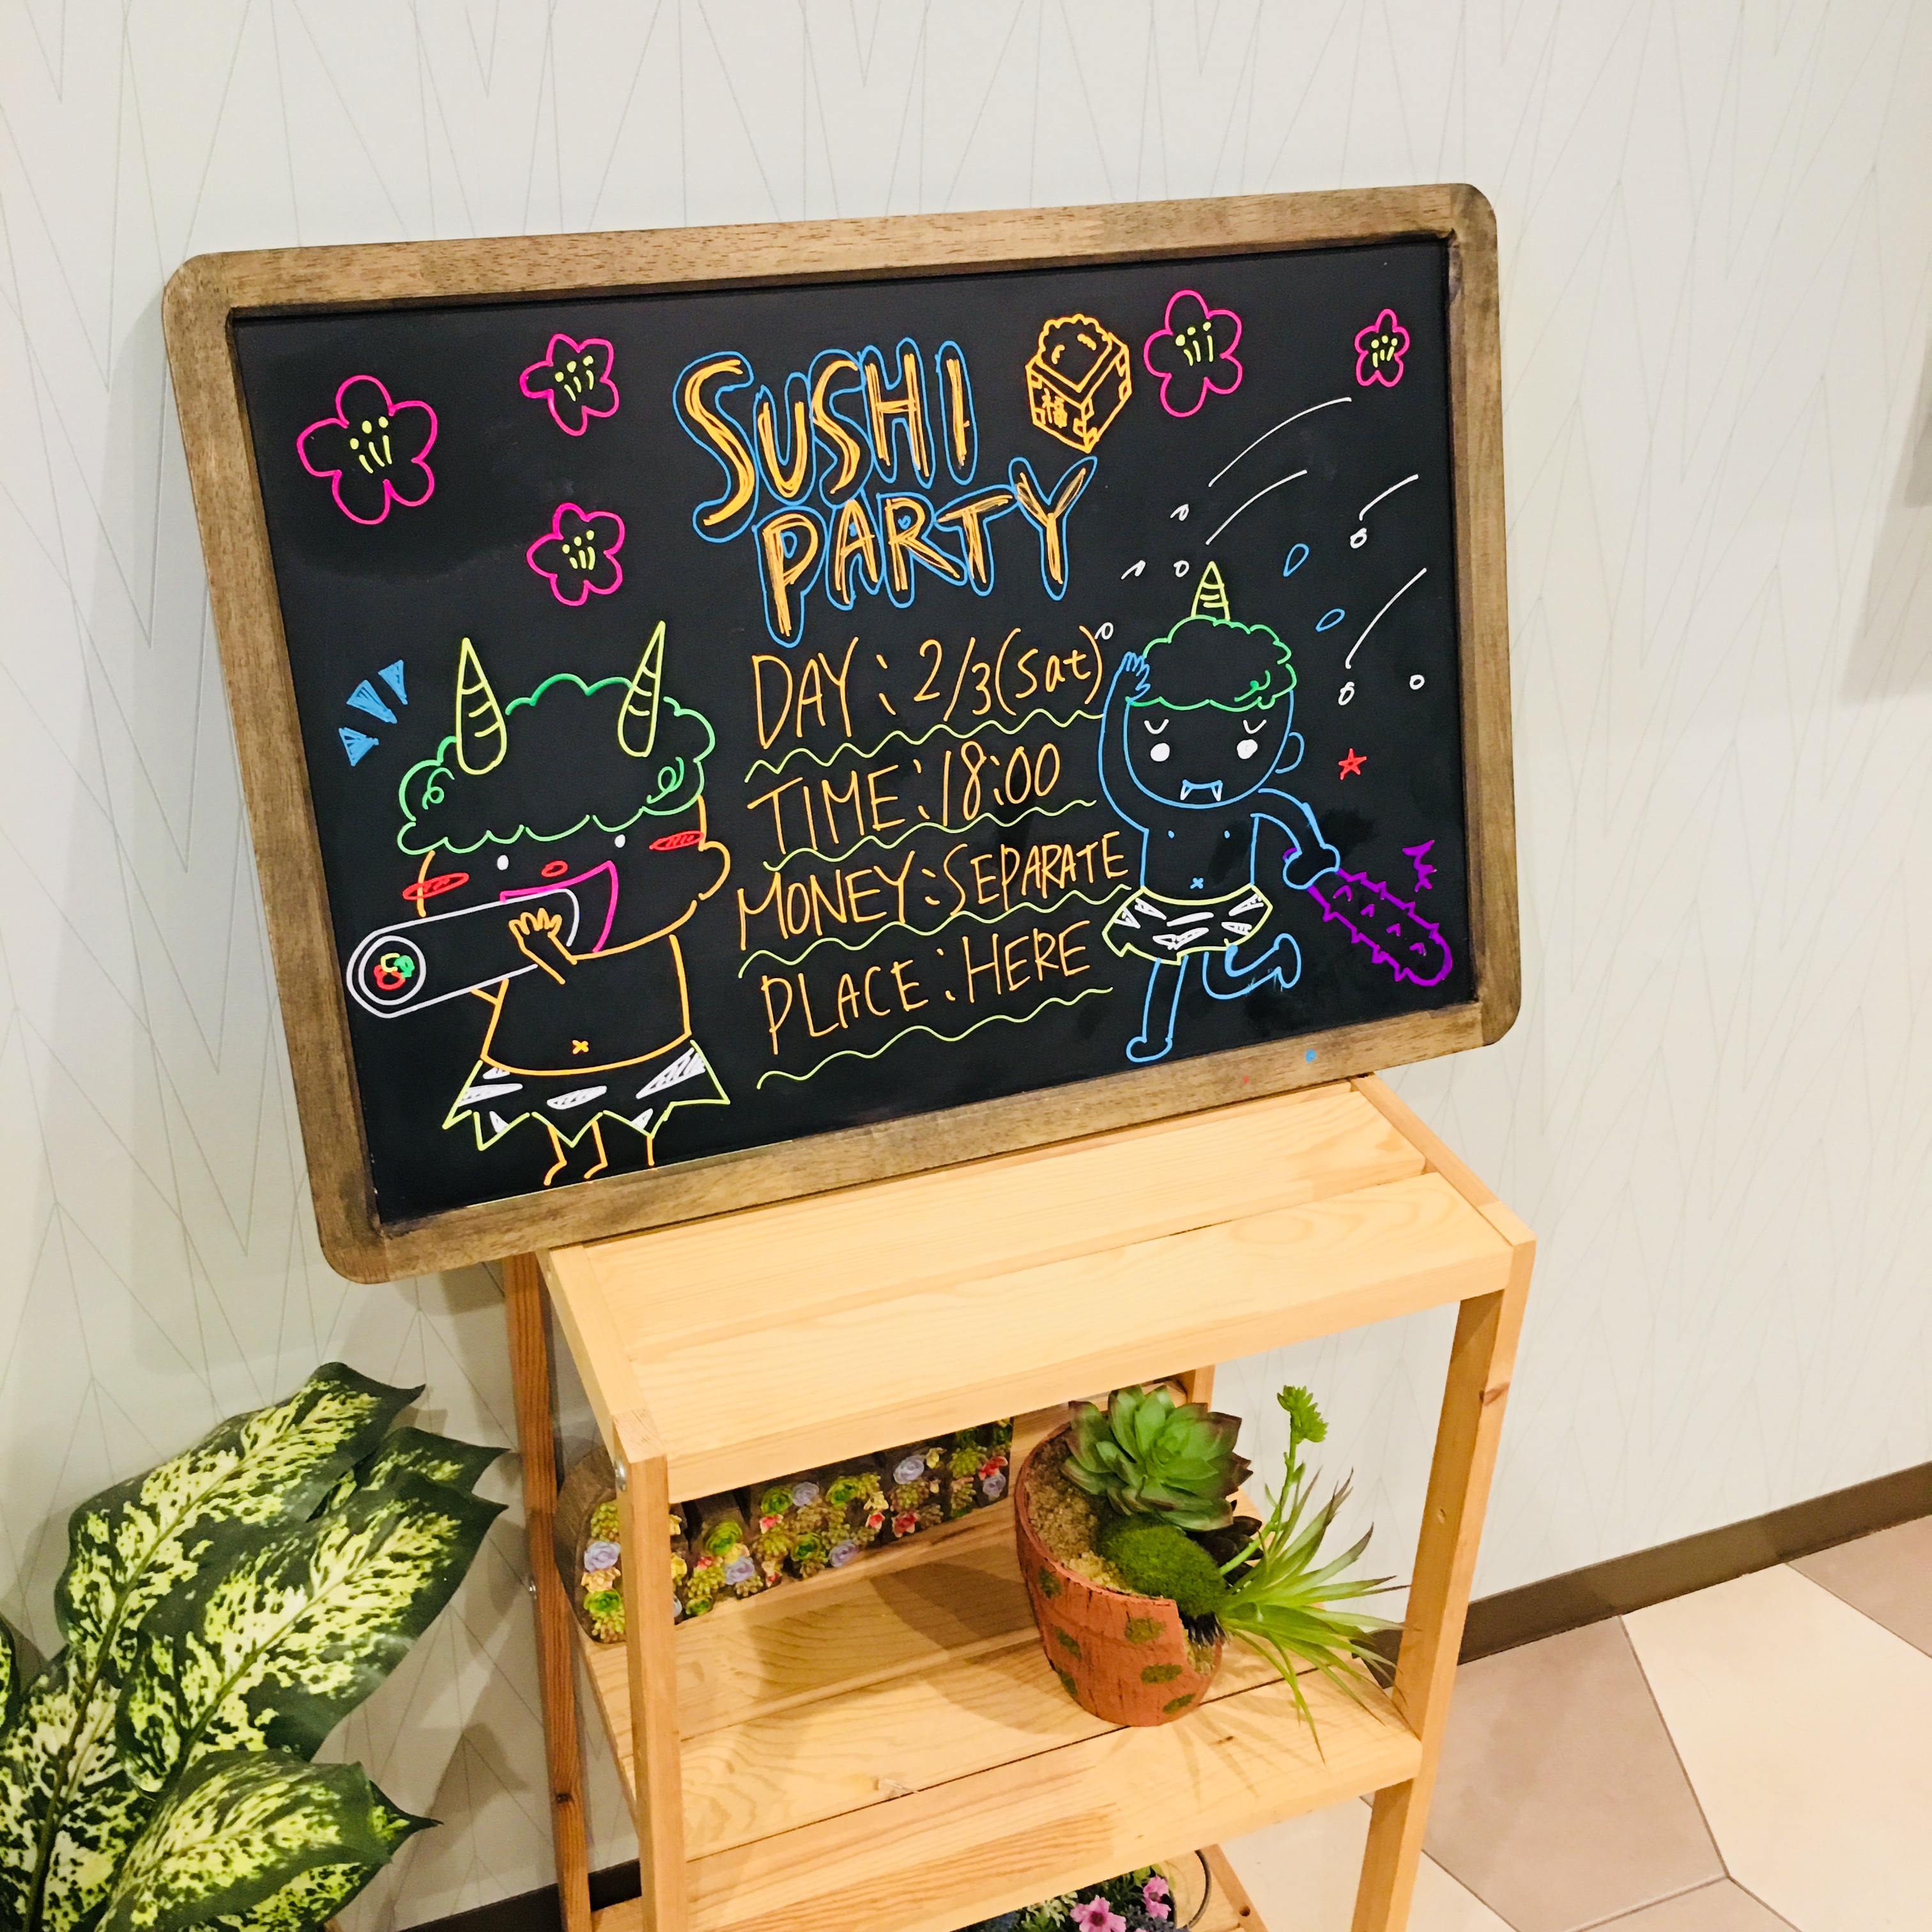 SUSHI
福
PARTY
DAY: 2/3(Sat)
TIME:18:00
MONEY:SEPARATE
PLACE:HERE